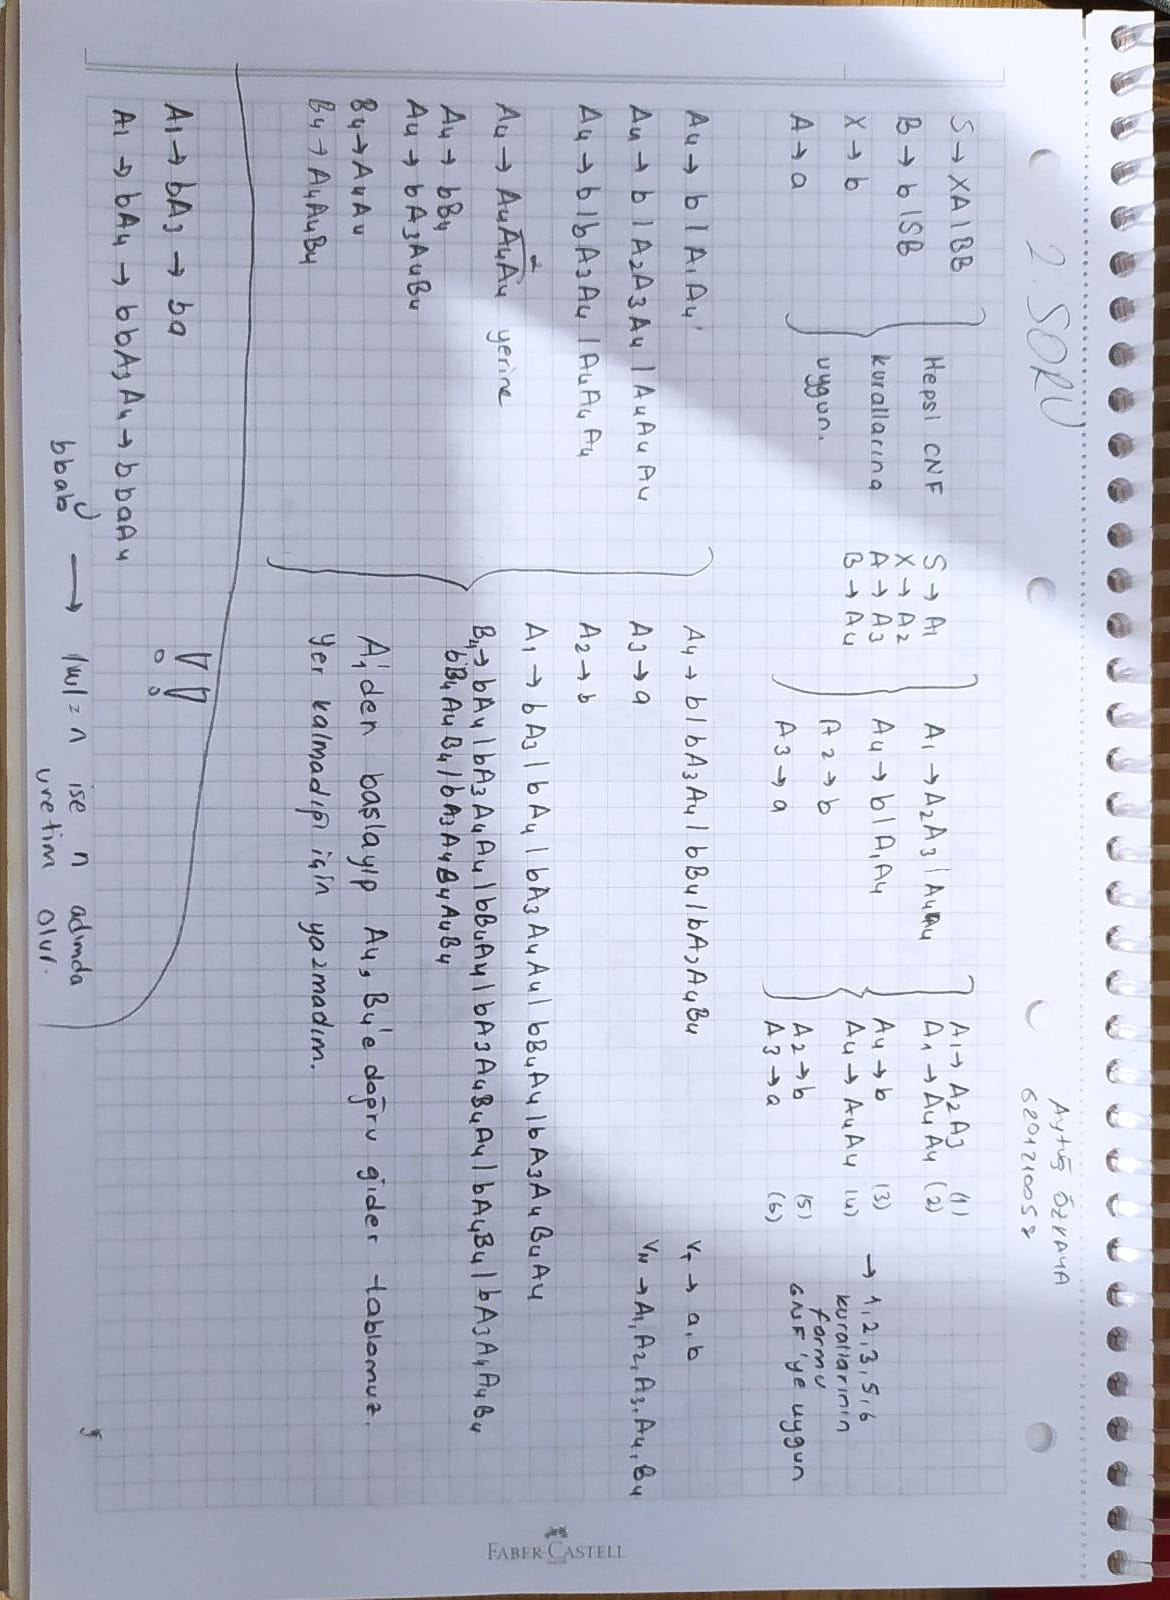 Aytuğ ÖZKAYA
2. SORU
S → XA | BB
B → b | SB
X → b
A → a
Hepsi CNF
kurallarına
uygun.
S → A1
X → A2
A → A3
B → A4
A1 → A2A3 | A4A4
A4 → b | A1A4
A2 → b
A3 → a
A1 → A2A3 (1)
A1 → A4A4 (2)
A4 → b (3)
A4 → A4A4 (4)
A2 → b (5)
A3 → a (6)
→ 1,2,3,5,6
kurallarının
formu
GNF'ye uygun
A4 → b | A1A4'
A4 → b | A2A3A4 | A4A4A4
A4 → b | bA3A4 | A4A4A4
A4 → A4A4A4 yerine
A4 → bB4
A4 → bA3A4B4
B4 → A4A4
B4 → A4A4B4
A4 → b | bA3A4 | bB4 | bA3A4B4
A3 → a
A2 → b
A1 → bA3 | bA4 | bA3A4A4 | bB4A4 | bA3A4B4A4
B4 → bA4 | bA3A4A4 | bB4A4 | bA3A4B4A4 | bA4B4 | bA3A4A4B4
bB4A4B4 | bA3A4B4A4B4
VT → a, b
VN → A1, A2, A3, A4, B4
A1'den başlayıp A4, B4'e doğru gider tablomuz.
Yer kalmadığı için yazmadım.
A1 → bA3 → ba
A1 → bA4 → bbA3A4 → bbaA4
bbab → |w| = n ise n adımda
üretim olur.
FABER-CASTELL